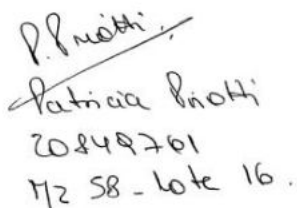 P. Priotti.
Patricia Priotti
20849701
Mz 58 - Lote 16.